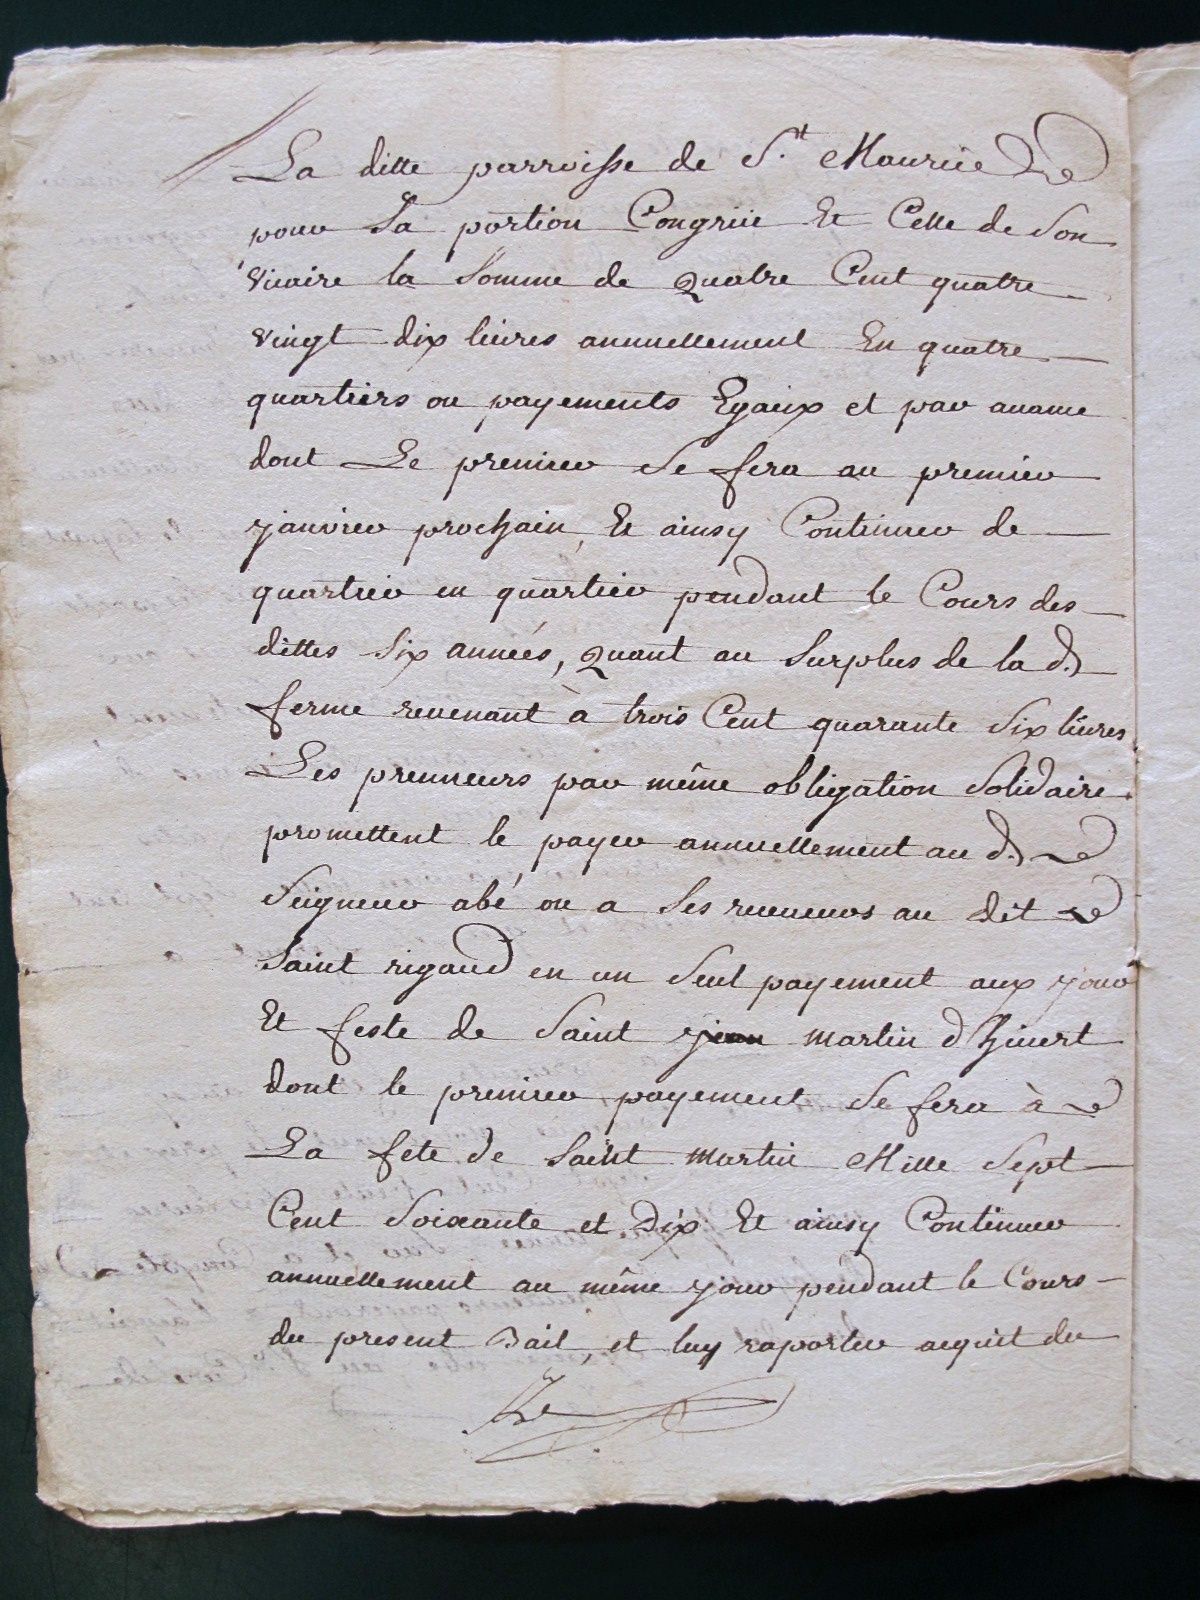 La ditte parroisse de S.t Maurice
pour Sa portion Congrüe Et Celle de Son
vicaire la Somme de Quatre Cent quatre
vingt dix livres annuellement En quatre
quartiers ou payements Egaux et par avance
dont Le premier Se fera au premier
janvier prochain, Et ainsy Continuer de
quartier en quartier pendant le Cours des
dittes Six années, Quant au Surplus de la d.
ferme revenant à trois Cent quarante Six livres
Les prenneurs par même obligation Solidaire
promettent le payer annuellement au d.
Seigneur abé ou a Ses receveurs au dit
Saint rigaud en un Seul payement aux jour
Et feste de Saint martin d'hivert
dont le premier payement Se fera à
La fete de Saint martin Mille Sept
Cent Soixante et Dix Et ainsy Continuer
annuellement au même jour pendant le Cours
du present Bail, et luy raporter acquit du